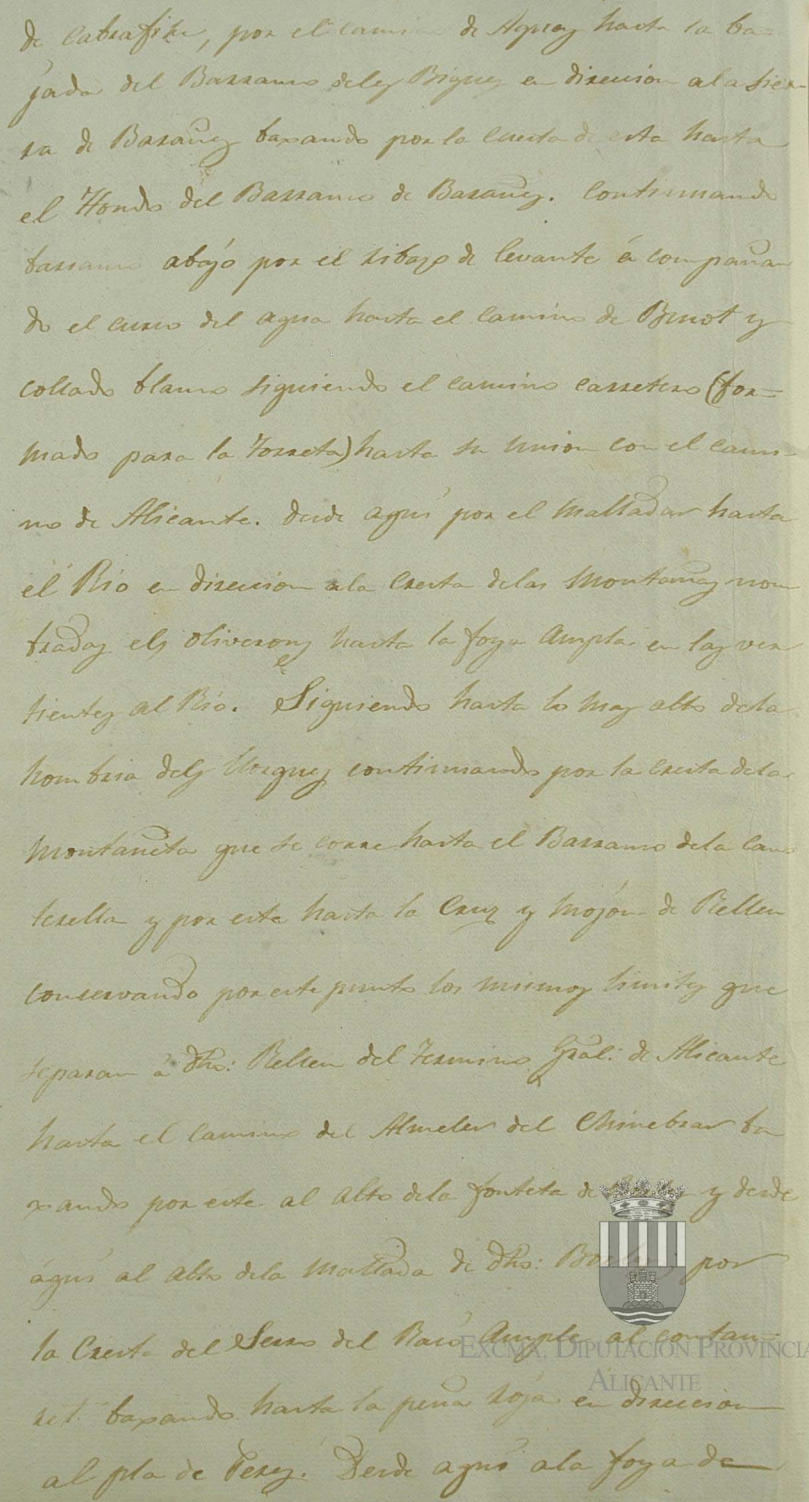 de Cabrafich, por el camino de Aguas hasta la ba-
jada del Barranco dels Bigues en direccion ala Sier-
ra de Barañes baxando por la Cresta de esta hasta
el Hondo del Barranco de Barañes. Continuando
barranco abajo por el ribazo de levante á compañan
do el curso del agua hasta el camino de Busot y
collado blanco siguiendo el camino carretero (for-
mado para la Torreta) hasta su union con el cami-
no de Alicante. desde aqui por el Malladar hasta
el Rio en direccion ala Cresta delas Montañas nom
bradas els oliverons hasta la foya Ampla en las ver
tientes al Rio. Siguiendo hasta lo mas alto dela
hombria dels continuando por la Cresta dela
Montañeta que se corre hasta el Barranco dela Can
terella y por este hasta la Cruz y Mojon de Relleu
conservando por este punto los mismos limites que
separan á dho: Relleu del Termino Gral: de Alicante
hasta el camino del del Chinebrar ba
xando por este al alto dela fonteta de y desde
aqui al alto dela Mallada de dho: por
la Cresta del Serro del Racó Ample al
baxando hasta la peña roja en direccion
al pla de Peres. Desde aqui ala foya de
EXCMA. DIPUTACIÓN PROVINCIA
ALICANTE